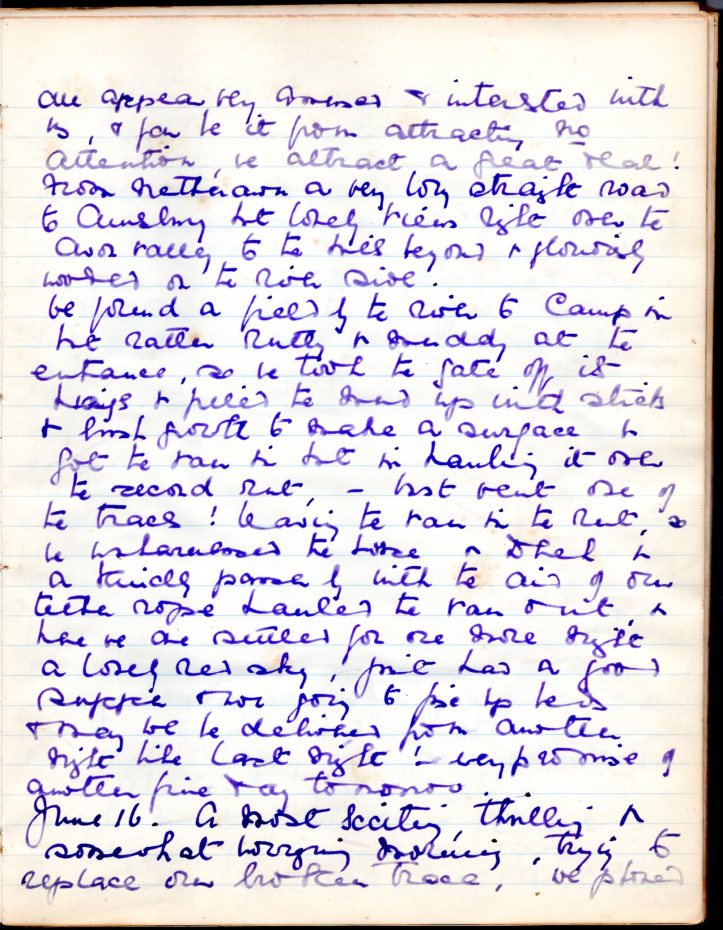 all appear very amused & interested with
us, & far be it from attracting no
attention, we attract a great deal!
From Netheravon a very long straight road
to Amesbury but lovely views right over the
Avon valley to the hills beyond & gloriously
wooded on the river side.
We found a field by the river to Camp in
but rather rutty & muddy at the
entrance, so we took the gate off its
hinges & filled the mud up with sticks
& brush growth to make a surface &
got the van in but in hauling it over
the second rut, – bust went one of
the traces! leaving the van in the rut, so
we unharnessed the horse & &
a kindly passer by with the aid of our
tether rope hauled the van out, &
here we are settled for one more night
a lovely red sky, just had a good
supper & now going to fix up beds
& may we be delivered from another
night like last night! – every promise of
another fine day tomorrow.
June 16. A most exciting, thrilling &
somewhat worrying morning, trying to
replace our broken trace, we phoned